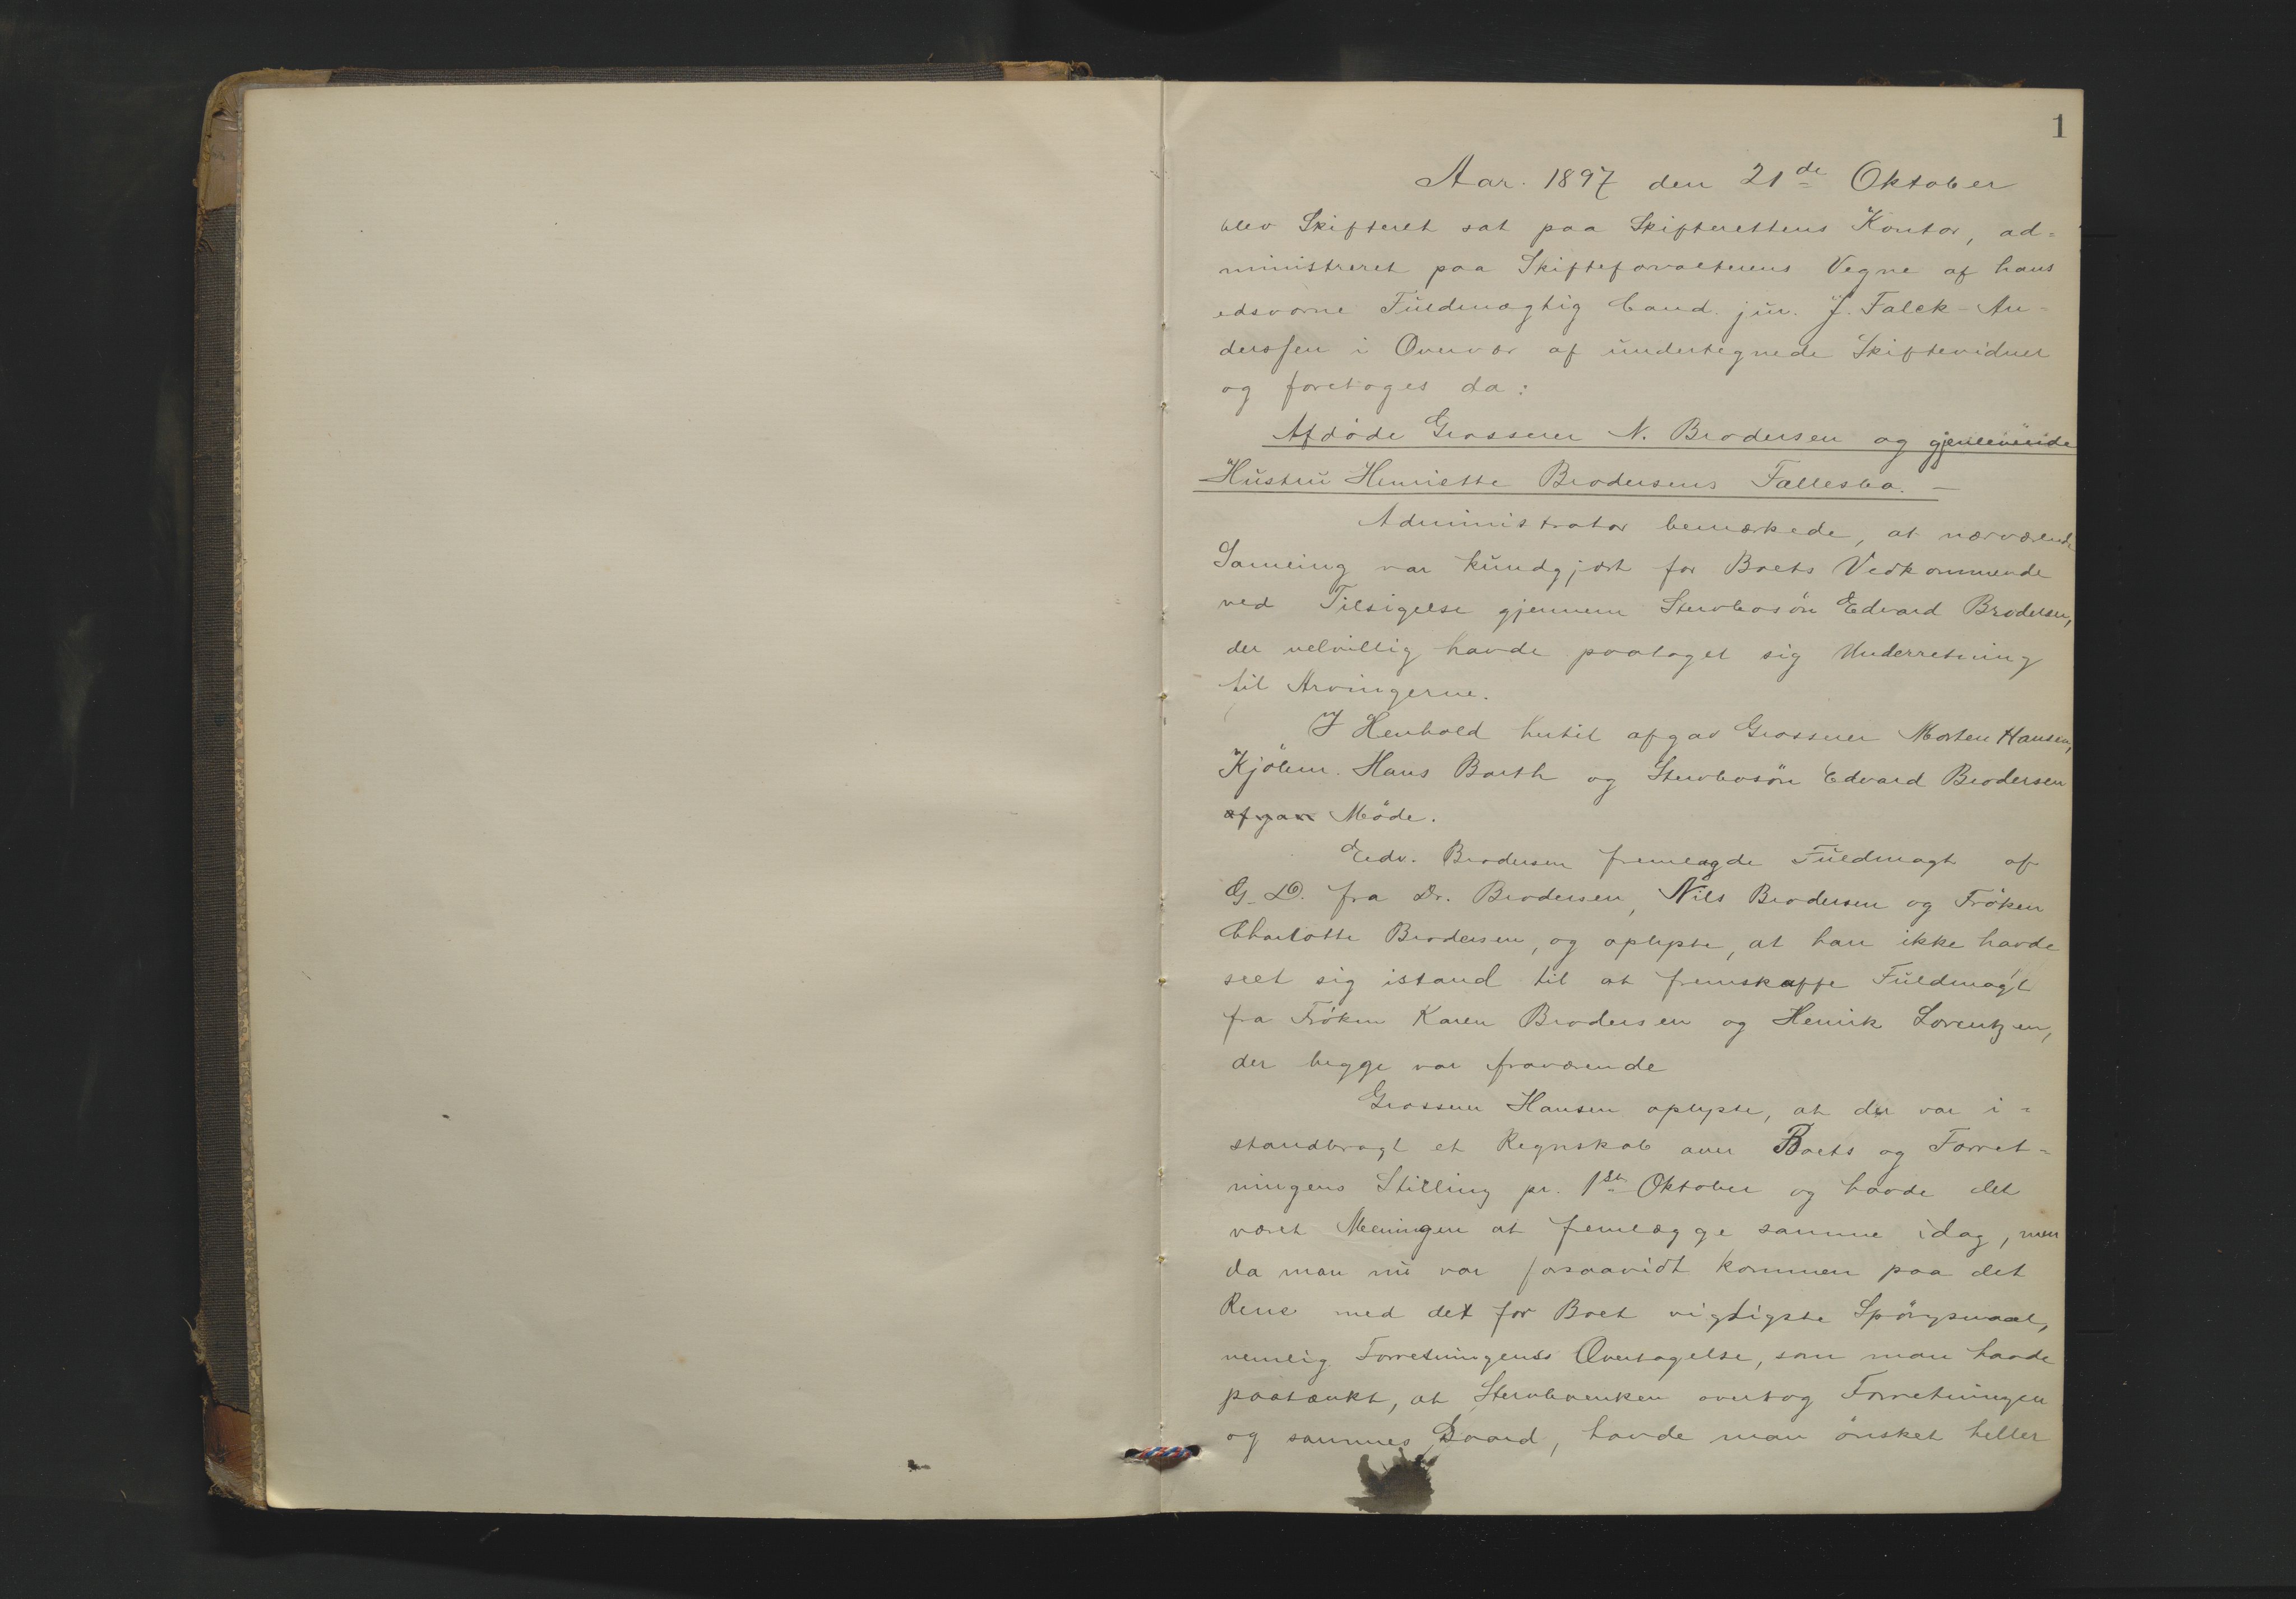 1
Aar. 1897 den 21de Oktober
blev Skifteret sat paa Skifterettens Kontor, ad=
ministreret paa Skifteforvalterens Vegne af hans
edsvorne Fuldmægtig Cand. jur. J. Falck-An=
derssen i Overvær af undertegnede Skiftevidner
og foretoges da:
Afdøde Grosserer N. Brodersen og gjenlevende
Hustru Henriette Brodersens Fællesbo. —
Administrator bemærkede, at nærværende
Samling var kundgjort for Boets Vedkommende
ved Tilsigelse gjennem Stervbosön Edvard Brodersen,
der velvillig havde paataget sig Underretning
til Arvingerne.
I Henhold hertil afgav Grosserer Morten Hansen,
Kjöbm. Hans Barth og Stervbosön Edvard Brodersen
afgav Möde.
Edv. Brodersen fremlagde Fuldmagt af
G. D. fra Dr. Brodersen, Nils Brodersen og Fröken
Charlotte Brodersen, og oplyste, at han ikke havde
seet sig istand til at fremskaffe Fuldmagt
fra Fröken Karen Brodersen og Henrik Lorentzen,
der begge var fraværende
Grosserer Hansen oplyste, at der var i=
standbragt et Regnskab over Boets og Forret=
ningens Stilling pr. 1ste Oktober og havde det
været Meningen at fremlægge samme idag, men
da man nu var forsaavidt kommen paa det
Rene med det for Boet vigtigste Spörgsmaal,
nemlig Forretningens Overtagelse, som man havde
paatænkt, at Stervboenken overtog Forretningen
og sammes Gaard, havde man önsket heller